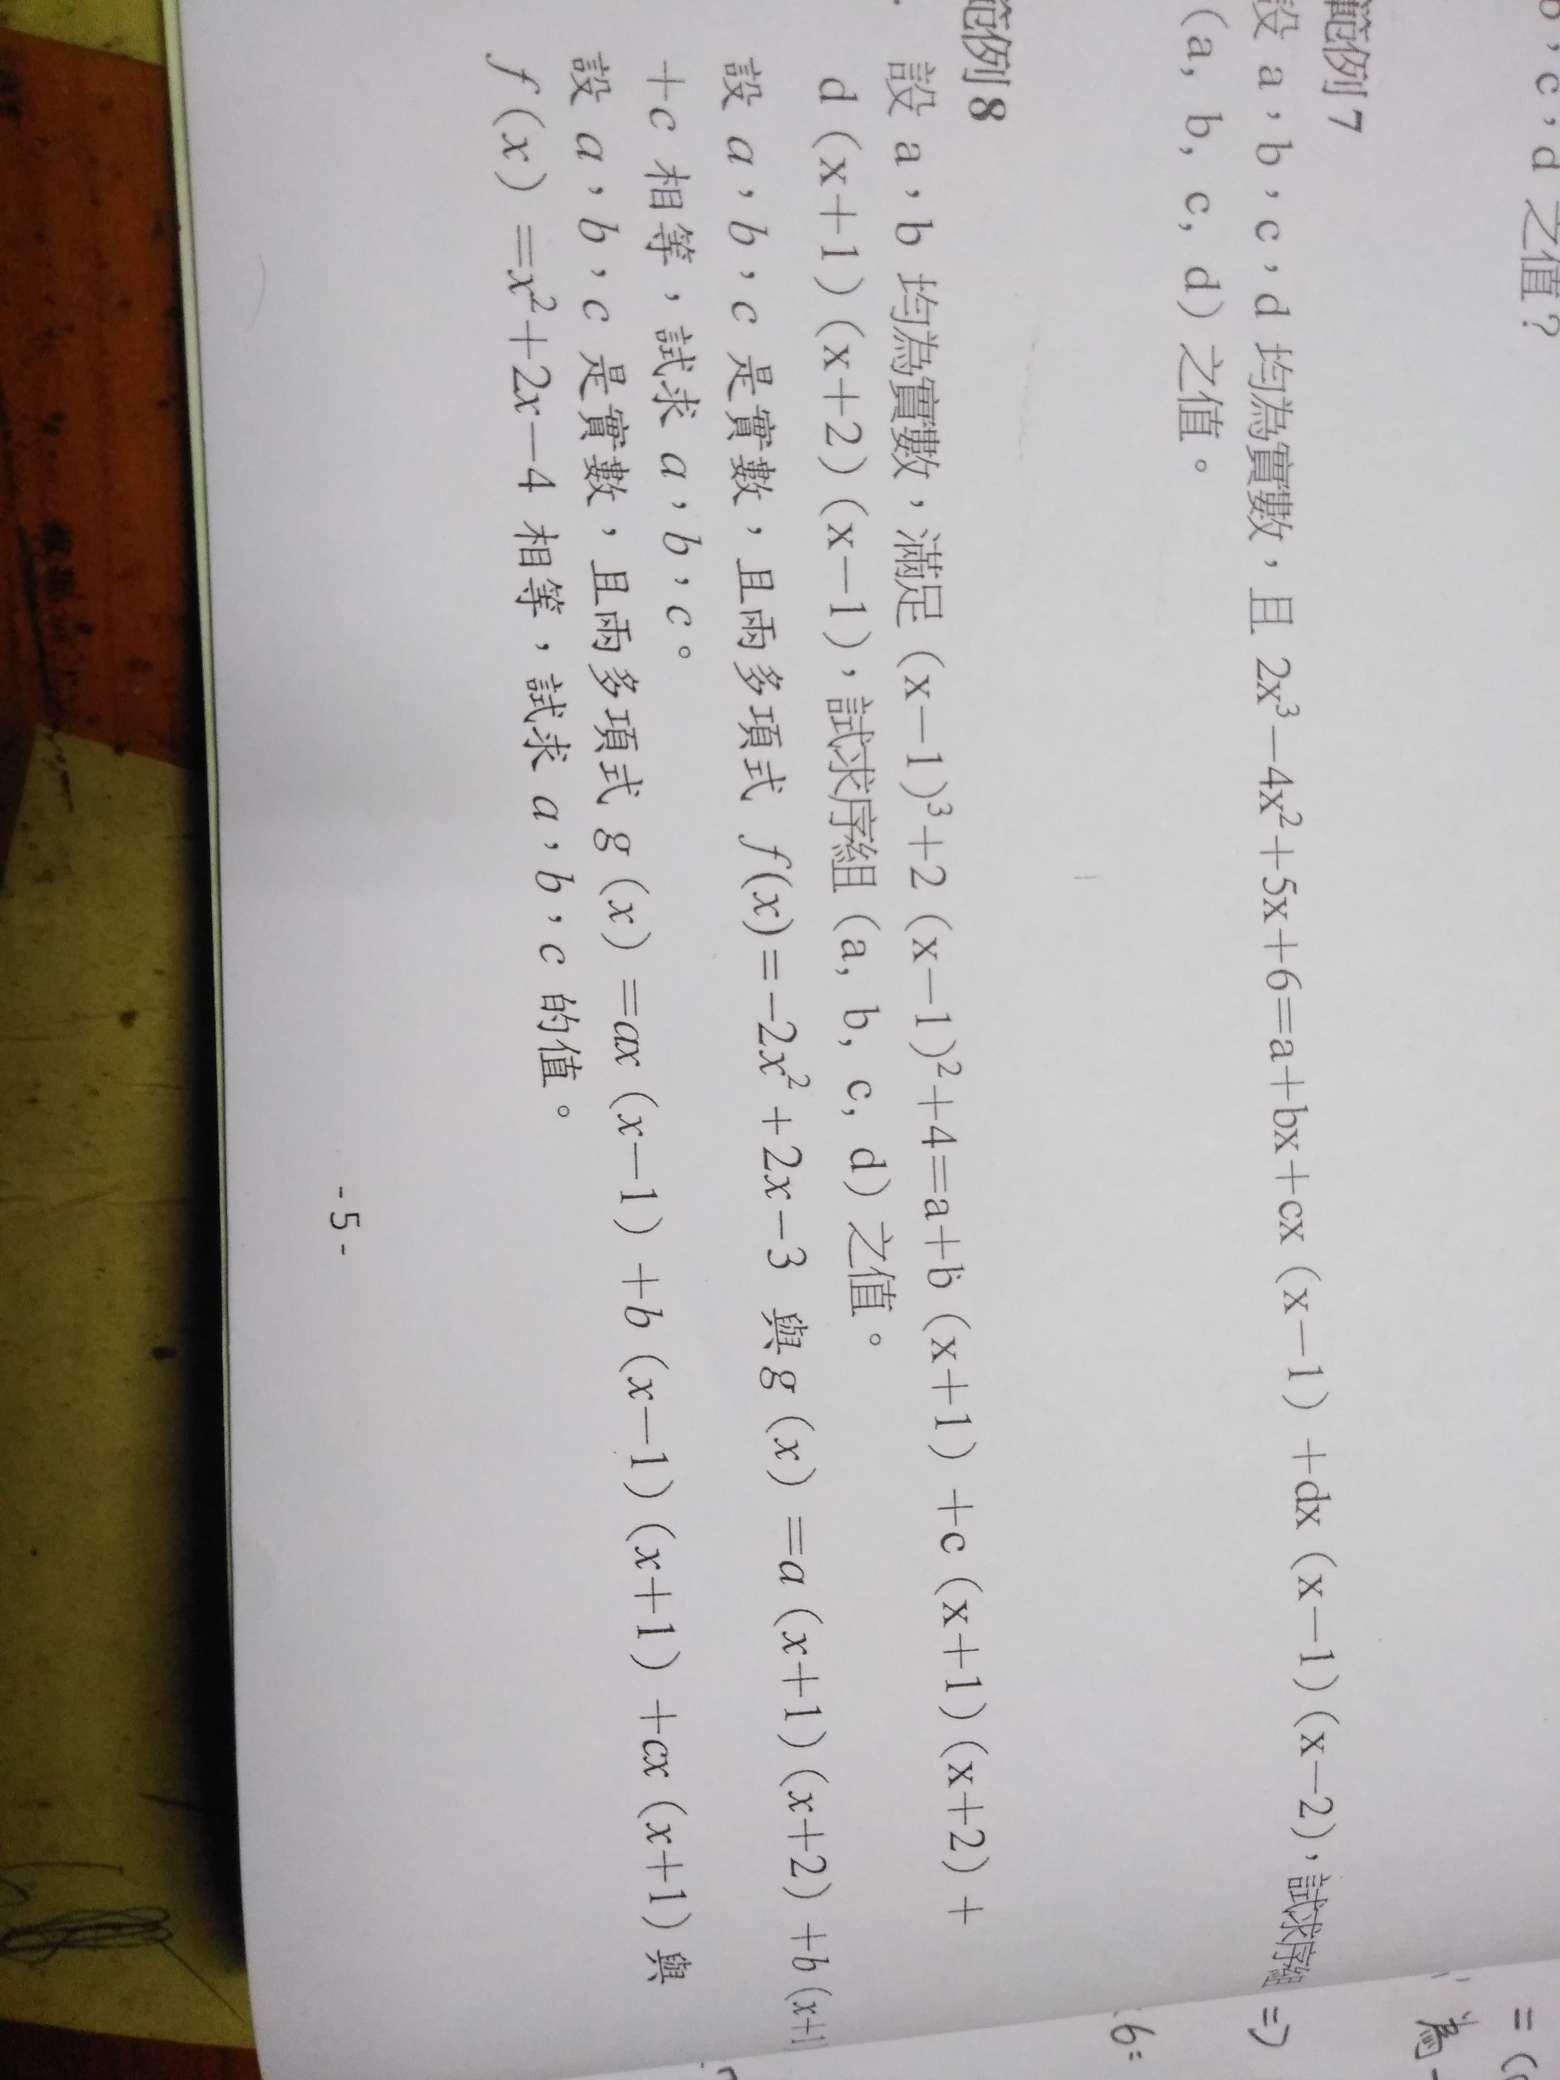 ，c，d 之值？
範例 7
設 a，b，c，d 均為實數，且 2x³－4x²＋5x＋6＝a＋bx＋cx（x－1）＋dx（x－1）（x－2），試求序組
（a, b, c, d）之值。
範例 8
設 a，b 均為實數，滿足（x－1）³＋2（x－1）²＋4＝a＋b（x＋1）＋c（x＋1）（x＋2）＋
d（x＋1）（x＋2）（x－1），試求序組（a, b, c, d）之值。
設 a，b，c 是實數，且兩多項式 f(x)＝－2x²＋2x－3 與 g（x）＝a（x＋1）（x＋2）＋b（x＋1
＋c 相等，試求 a，b，c。
設 a，b，c 是實數，且兩多項式 g（x）＝ax（x－1）＋b（x－1）（x＋1）＋cx（x＋1）與
f（x）＝x²＋2x－4 相等，試求 a，b，c 的值。
- 5 -
＝(
為
⇒